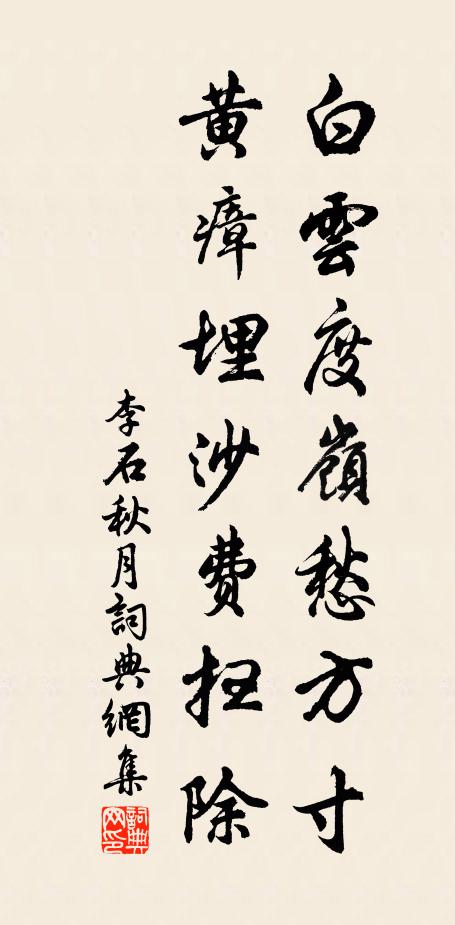 白雲度嶺愁方寸
黃瘴埋沙費扫除
李石秋月詞典網集
詞典
网